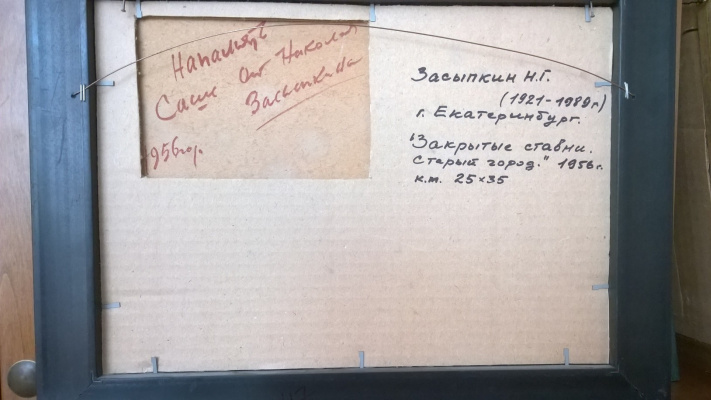 На память
Саше от Николая
Засыпкина
1956 год.
Засыпкин Н.Г.
(1921-1989г)
г. Екатеринбург.
"Закрытые ставни.
Старый город." 1956г.
к.т. 25×35